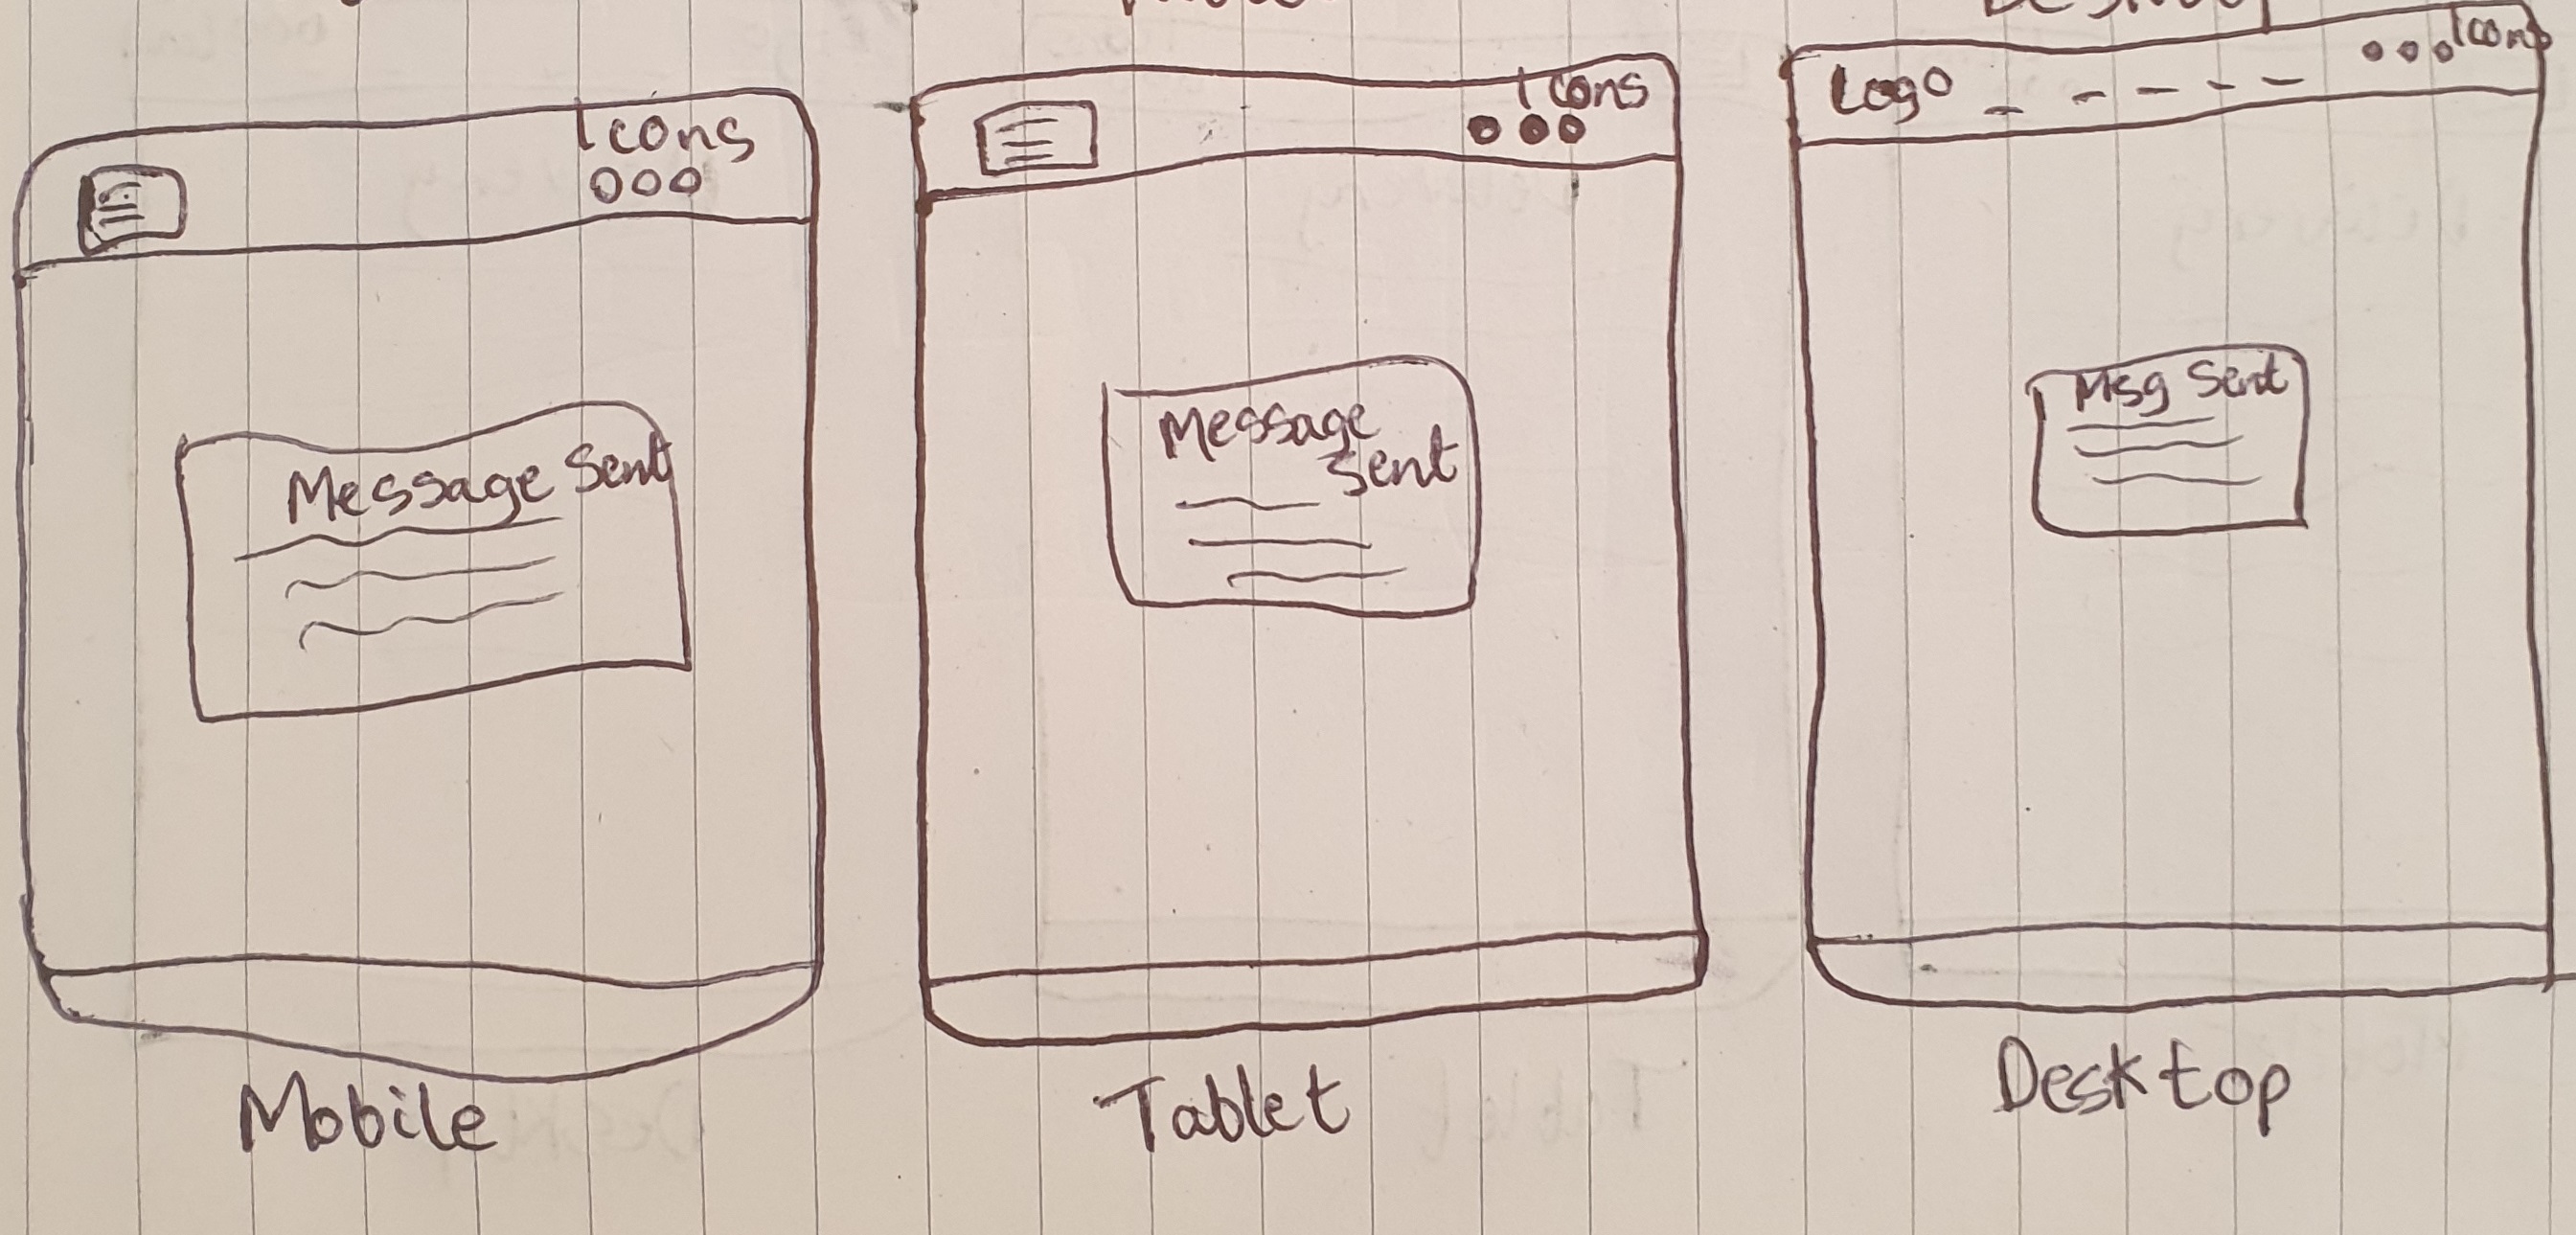 Icons
Message Sent
Mobile
Icons
Message
Sent
Tablet
Logo
Icons
Msg Sent
Desktop